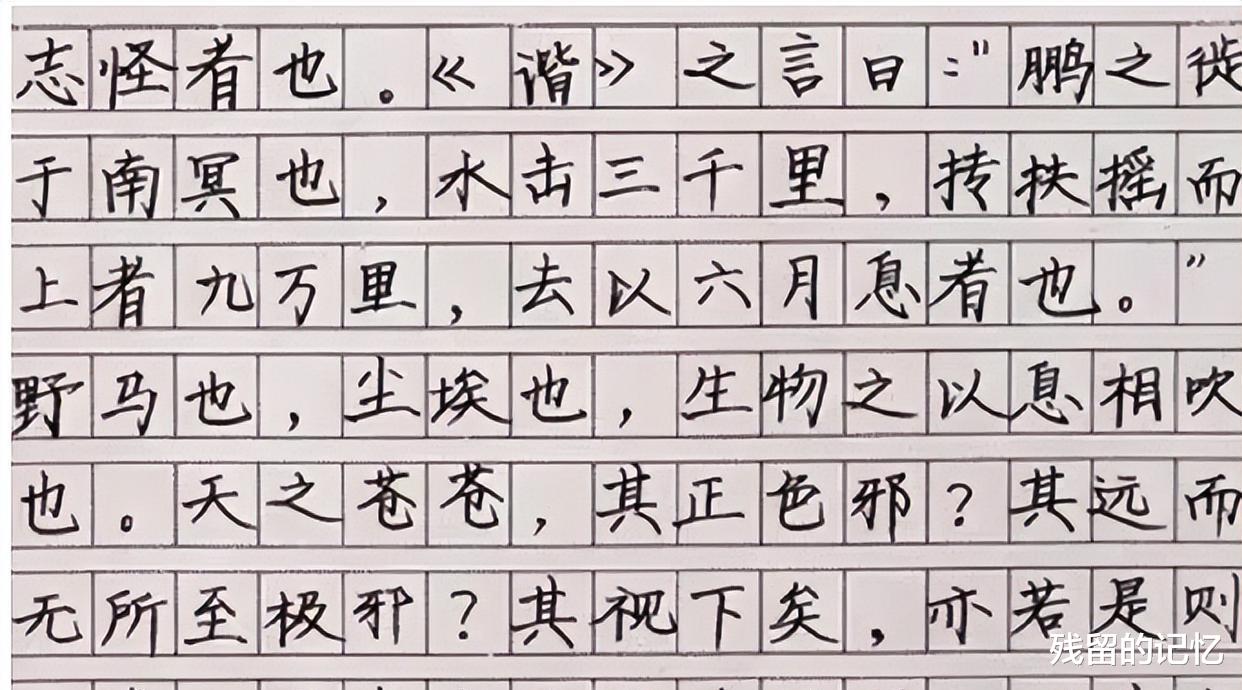 志怪者也。《谐》之言曰："鹏之徙
于南冥也，水击三千里，抟扶摇而
上者九万里，去以六月息者也。"
野马也，尘埃也，生物之以息相吹
也。天之苍苍，其正色邪？其远而
无所至极邪？其视下矣，亦若是则
残留的记忆